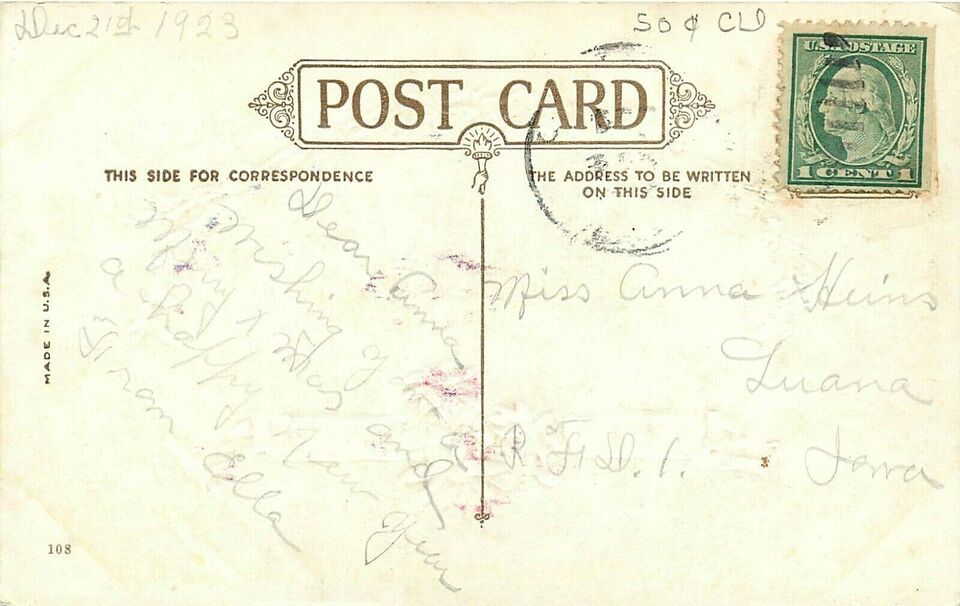 Dec 21st 1923
50¢ CLD
U.S. POSTAGE
1 CENT 1
POST CARD
THIS SIDE FOR CORRESPONDENCE
THE ADDRESS TO BE WRITTEN
ON THIS SIDE
Dear Anna
Wishing you a
Merry X Mas and
a happy New Year
From Ella
Miss Anna Heins
Luana
R.F.D. 1. Iowa
MADE IN U.S.A.
108